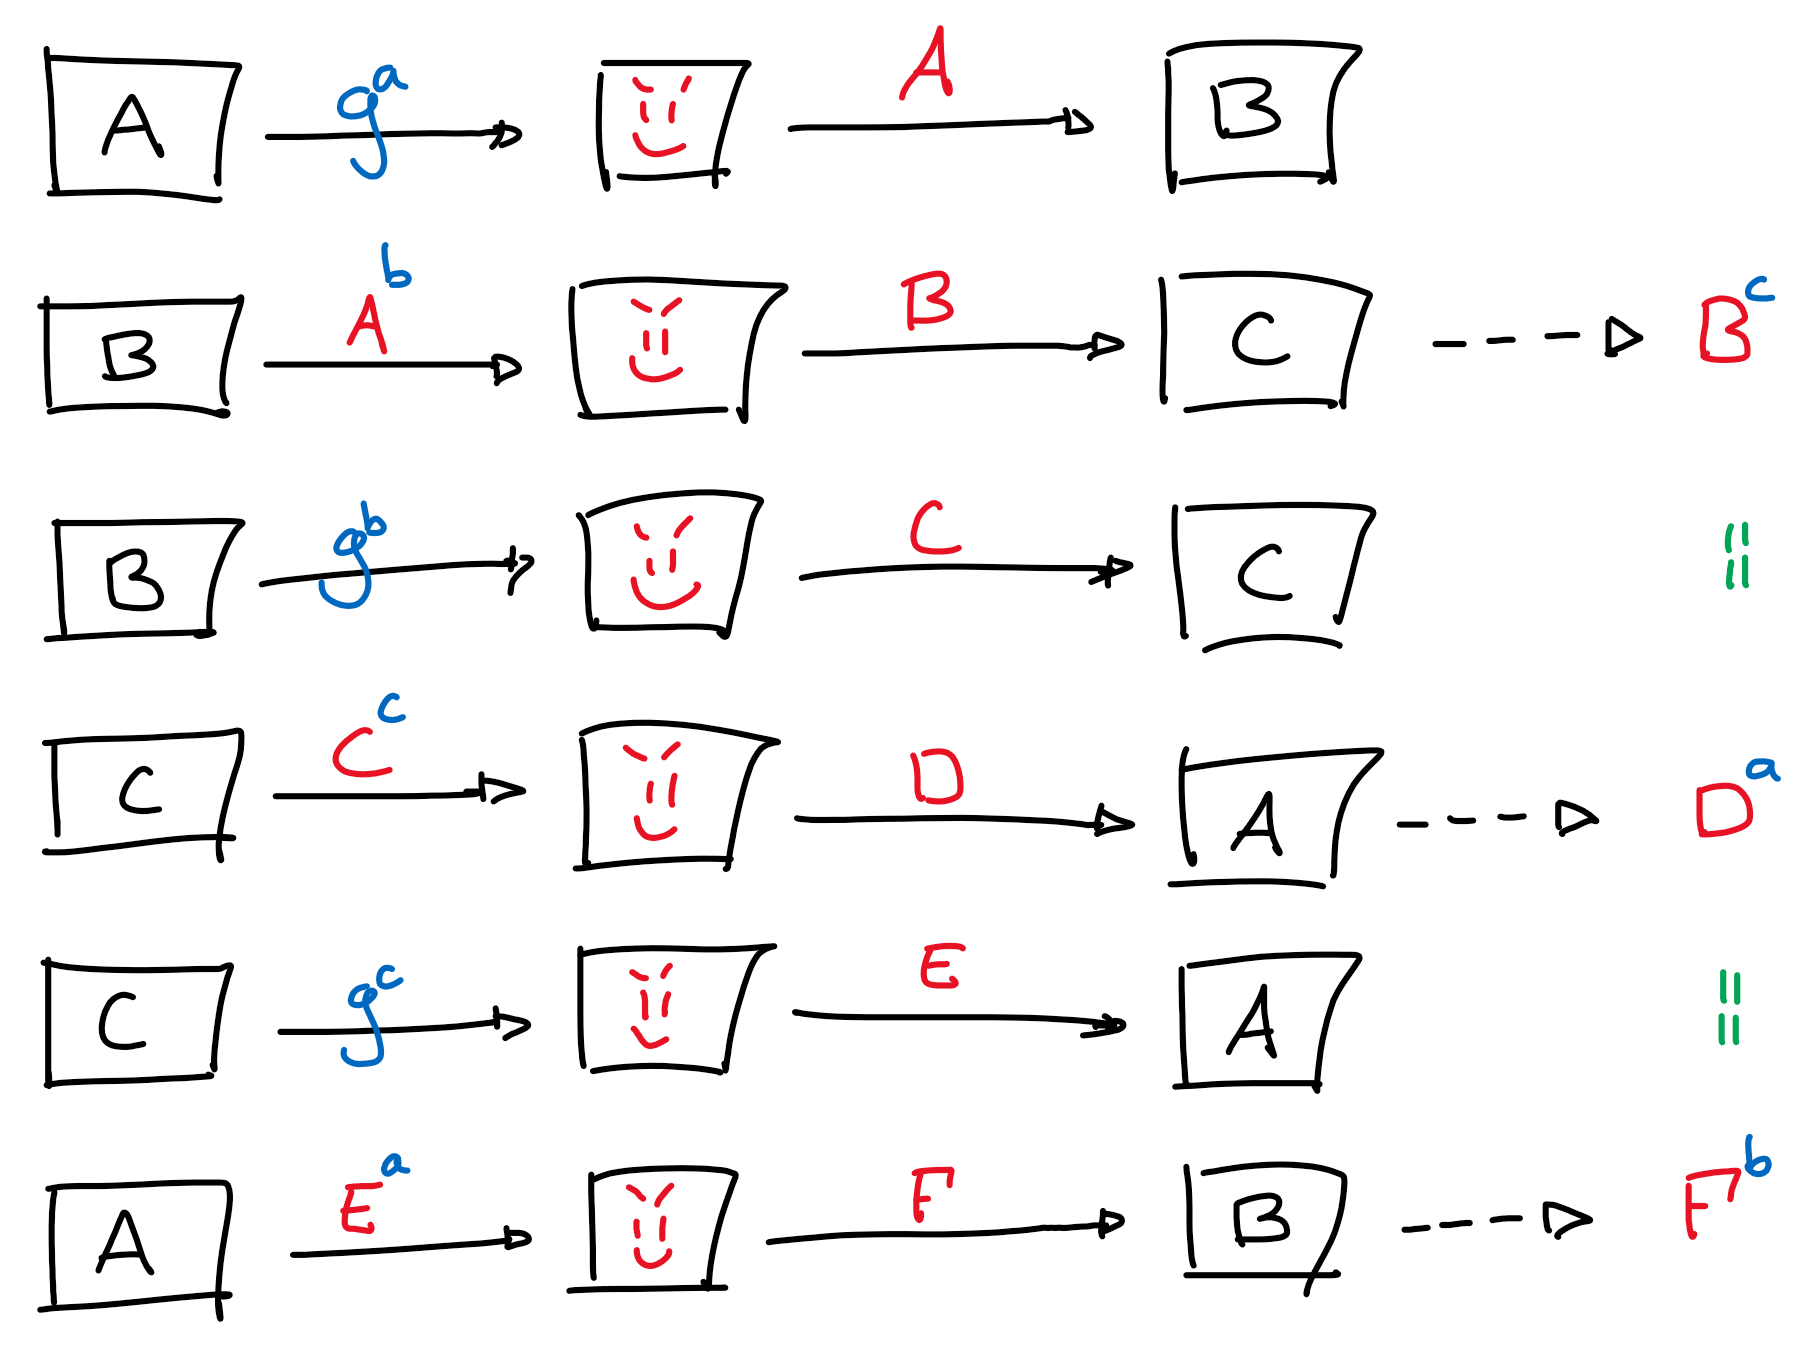 A g^a A B
B A^b B C B^c
B g^b C C =
C C^c D A D^a
C g^c E A =
A E^a F B F^b